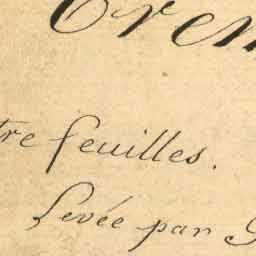 Crem
tre feuilles.
Levée par